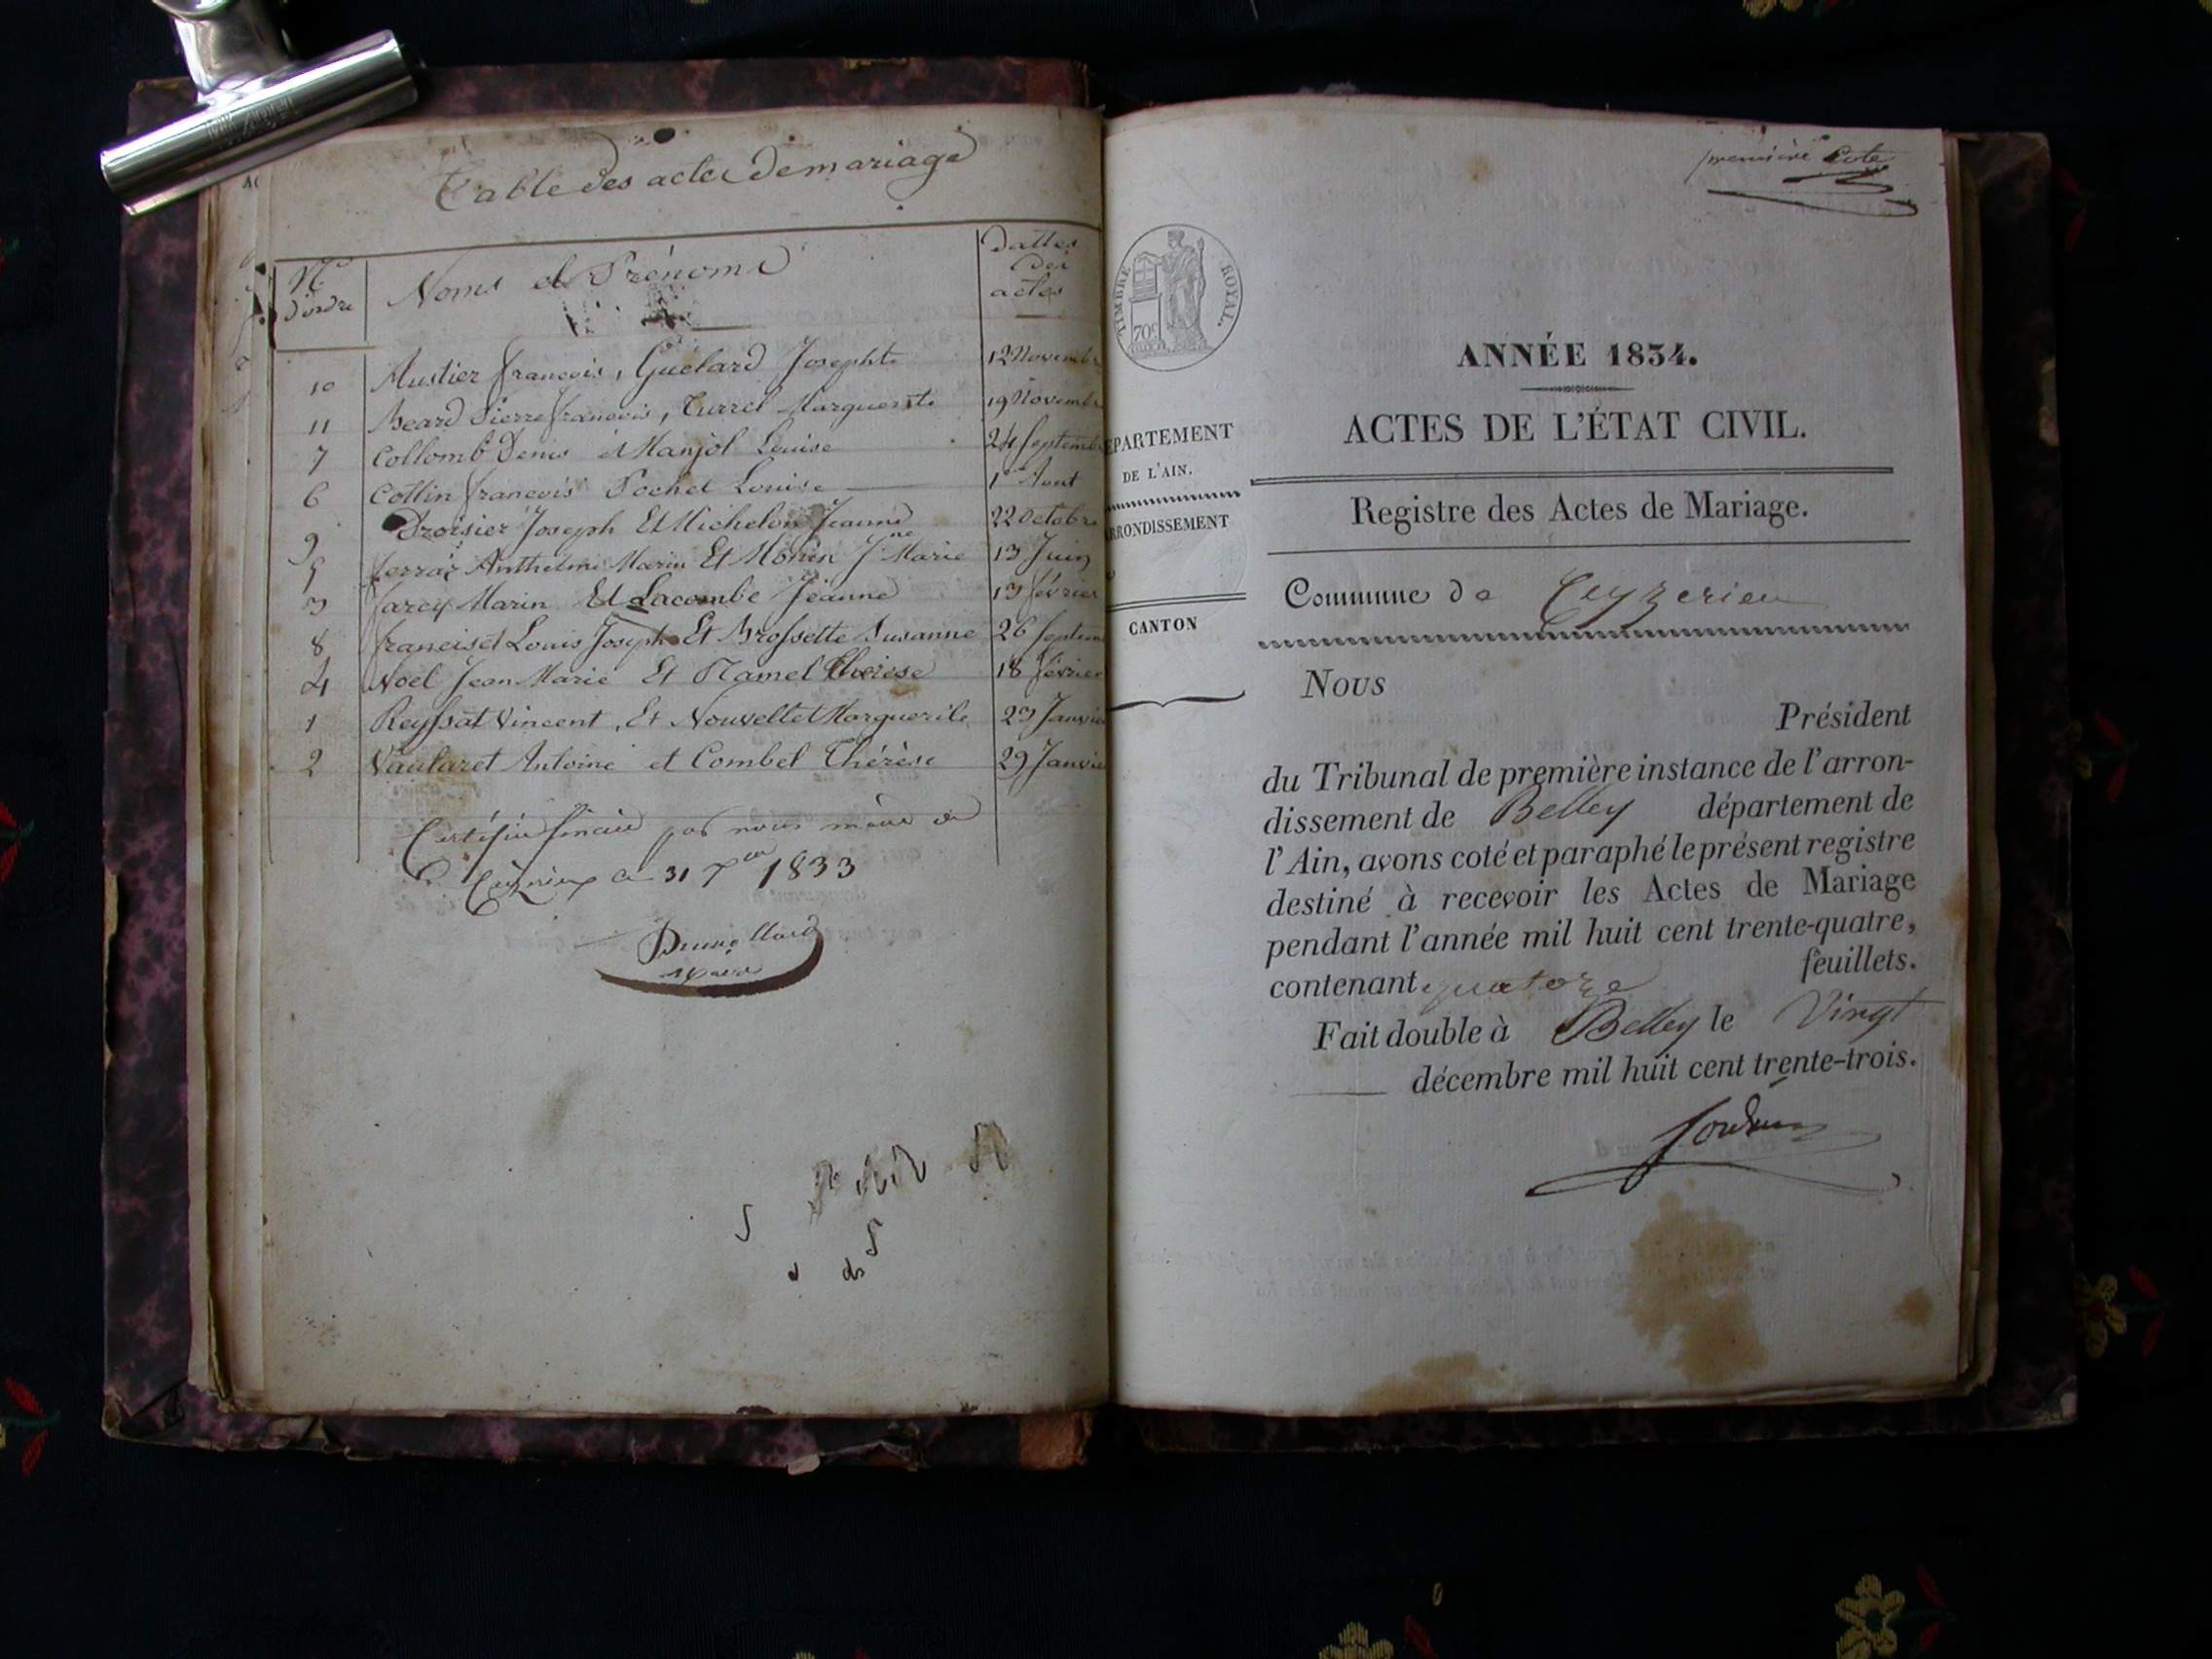 Table des actes de mariage
Nº d'ordre
Noms et Prénoms
Dattes des actes
10 Austier francois, Guélard Josephte 12 Novembr
11 Beard Pierre francois, Turrel Marguerite 19 Novembr
7 Collomb Denis et Manjol Louise 24 Septemb
6 Collin francois Pochet Louise 1er Aout
9 Droisier Joseph Et Michelon Jeanne 22 Octobre
5 ferraz Anthelme Marin Et Monin Jne Marie 13 Juin
3 farcy Marin Et Lacombe Jeanne 13 février
8 franciset Louis Joseph Et Brossette Susanne 26 Septem
4 Noël Jean Marie Et Ramel Therese 18 février
1 Reyssat Vincent, Et Nouvellet Marguerite 23 Janvie
2 Vaularet Antoine et Combet Thérèse 29 Janvie
Certifié sincère par nous maire de
ce 31 Xbre 1833
maire
première Cote
TIMBRE ROYAL.
70c
ANNÉE 1834.
ACTES DE L'ÉTAT CIVIL.
ÉPARTEMENT
DE L'AIN.
RRONDISSEMENT
CANTON
Registre des Actes de Mariage.
Commune de Ceyzerieu
Nous
Président
du Tribunal de première instance de l'arron-
dissement de Belley département de
l'Ain, avons coté et paraphé le présent registre
destiné à recevoir les Actes de Mariage
pendant l'année mil huit cent trente-quatre,
contenant quatorze feuillets.
Fait double à Belley le Vingt
décembre mil huit cent trente-trois.